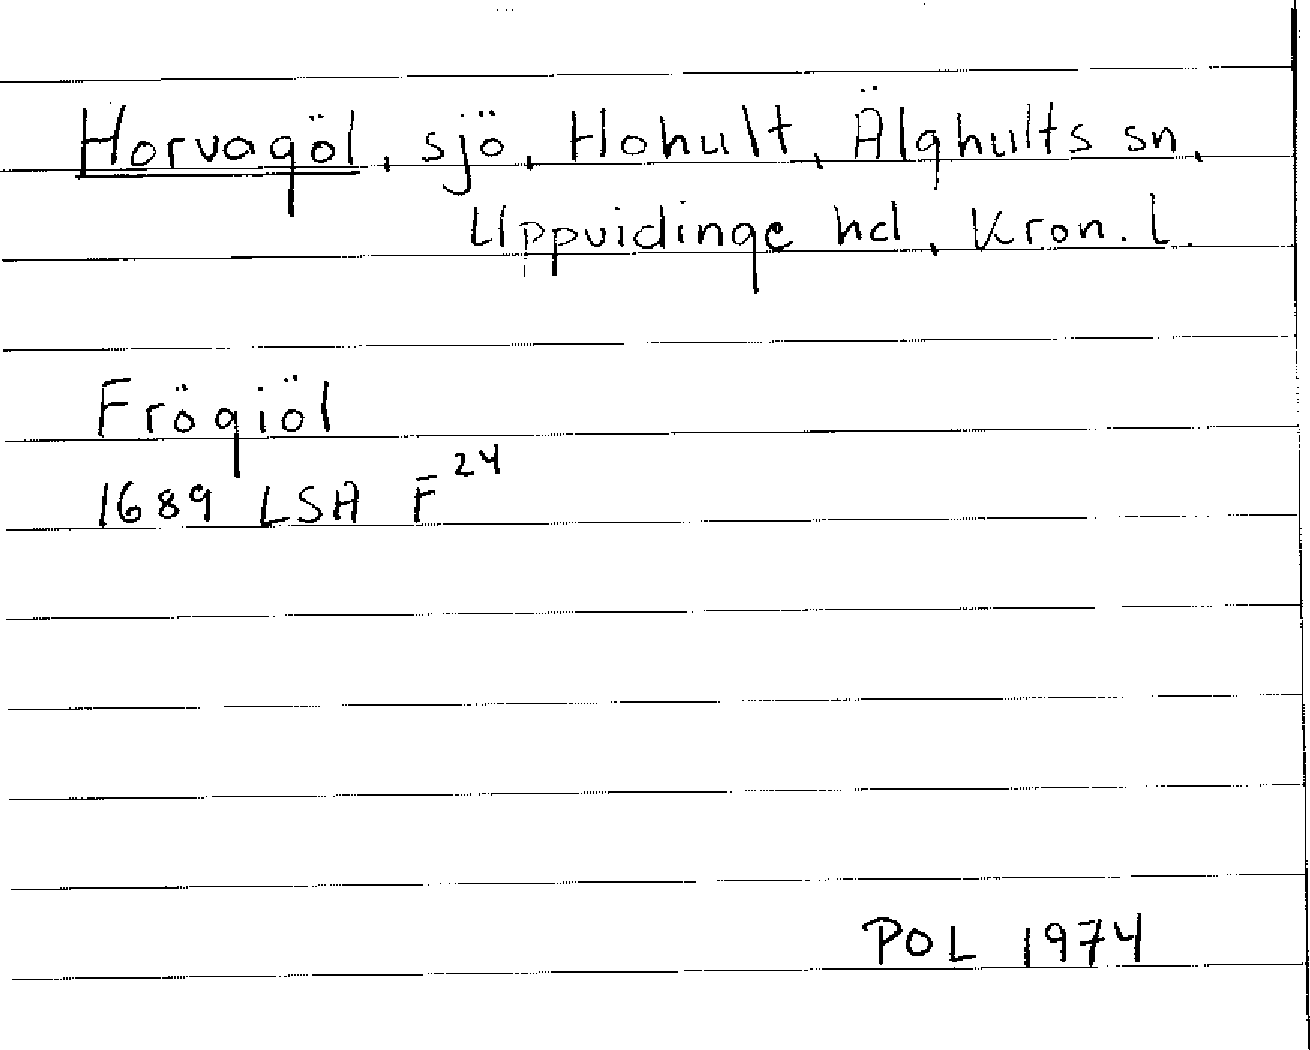 Horvagöl, sjö, Hohult, Älghults sn,
Uppvidinge hd, Kron. l.
Frögiöl
1689 LSA F²⁴
POL 1974